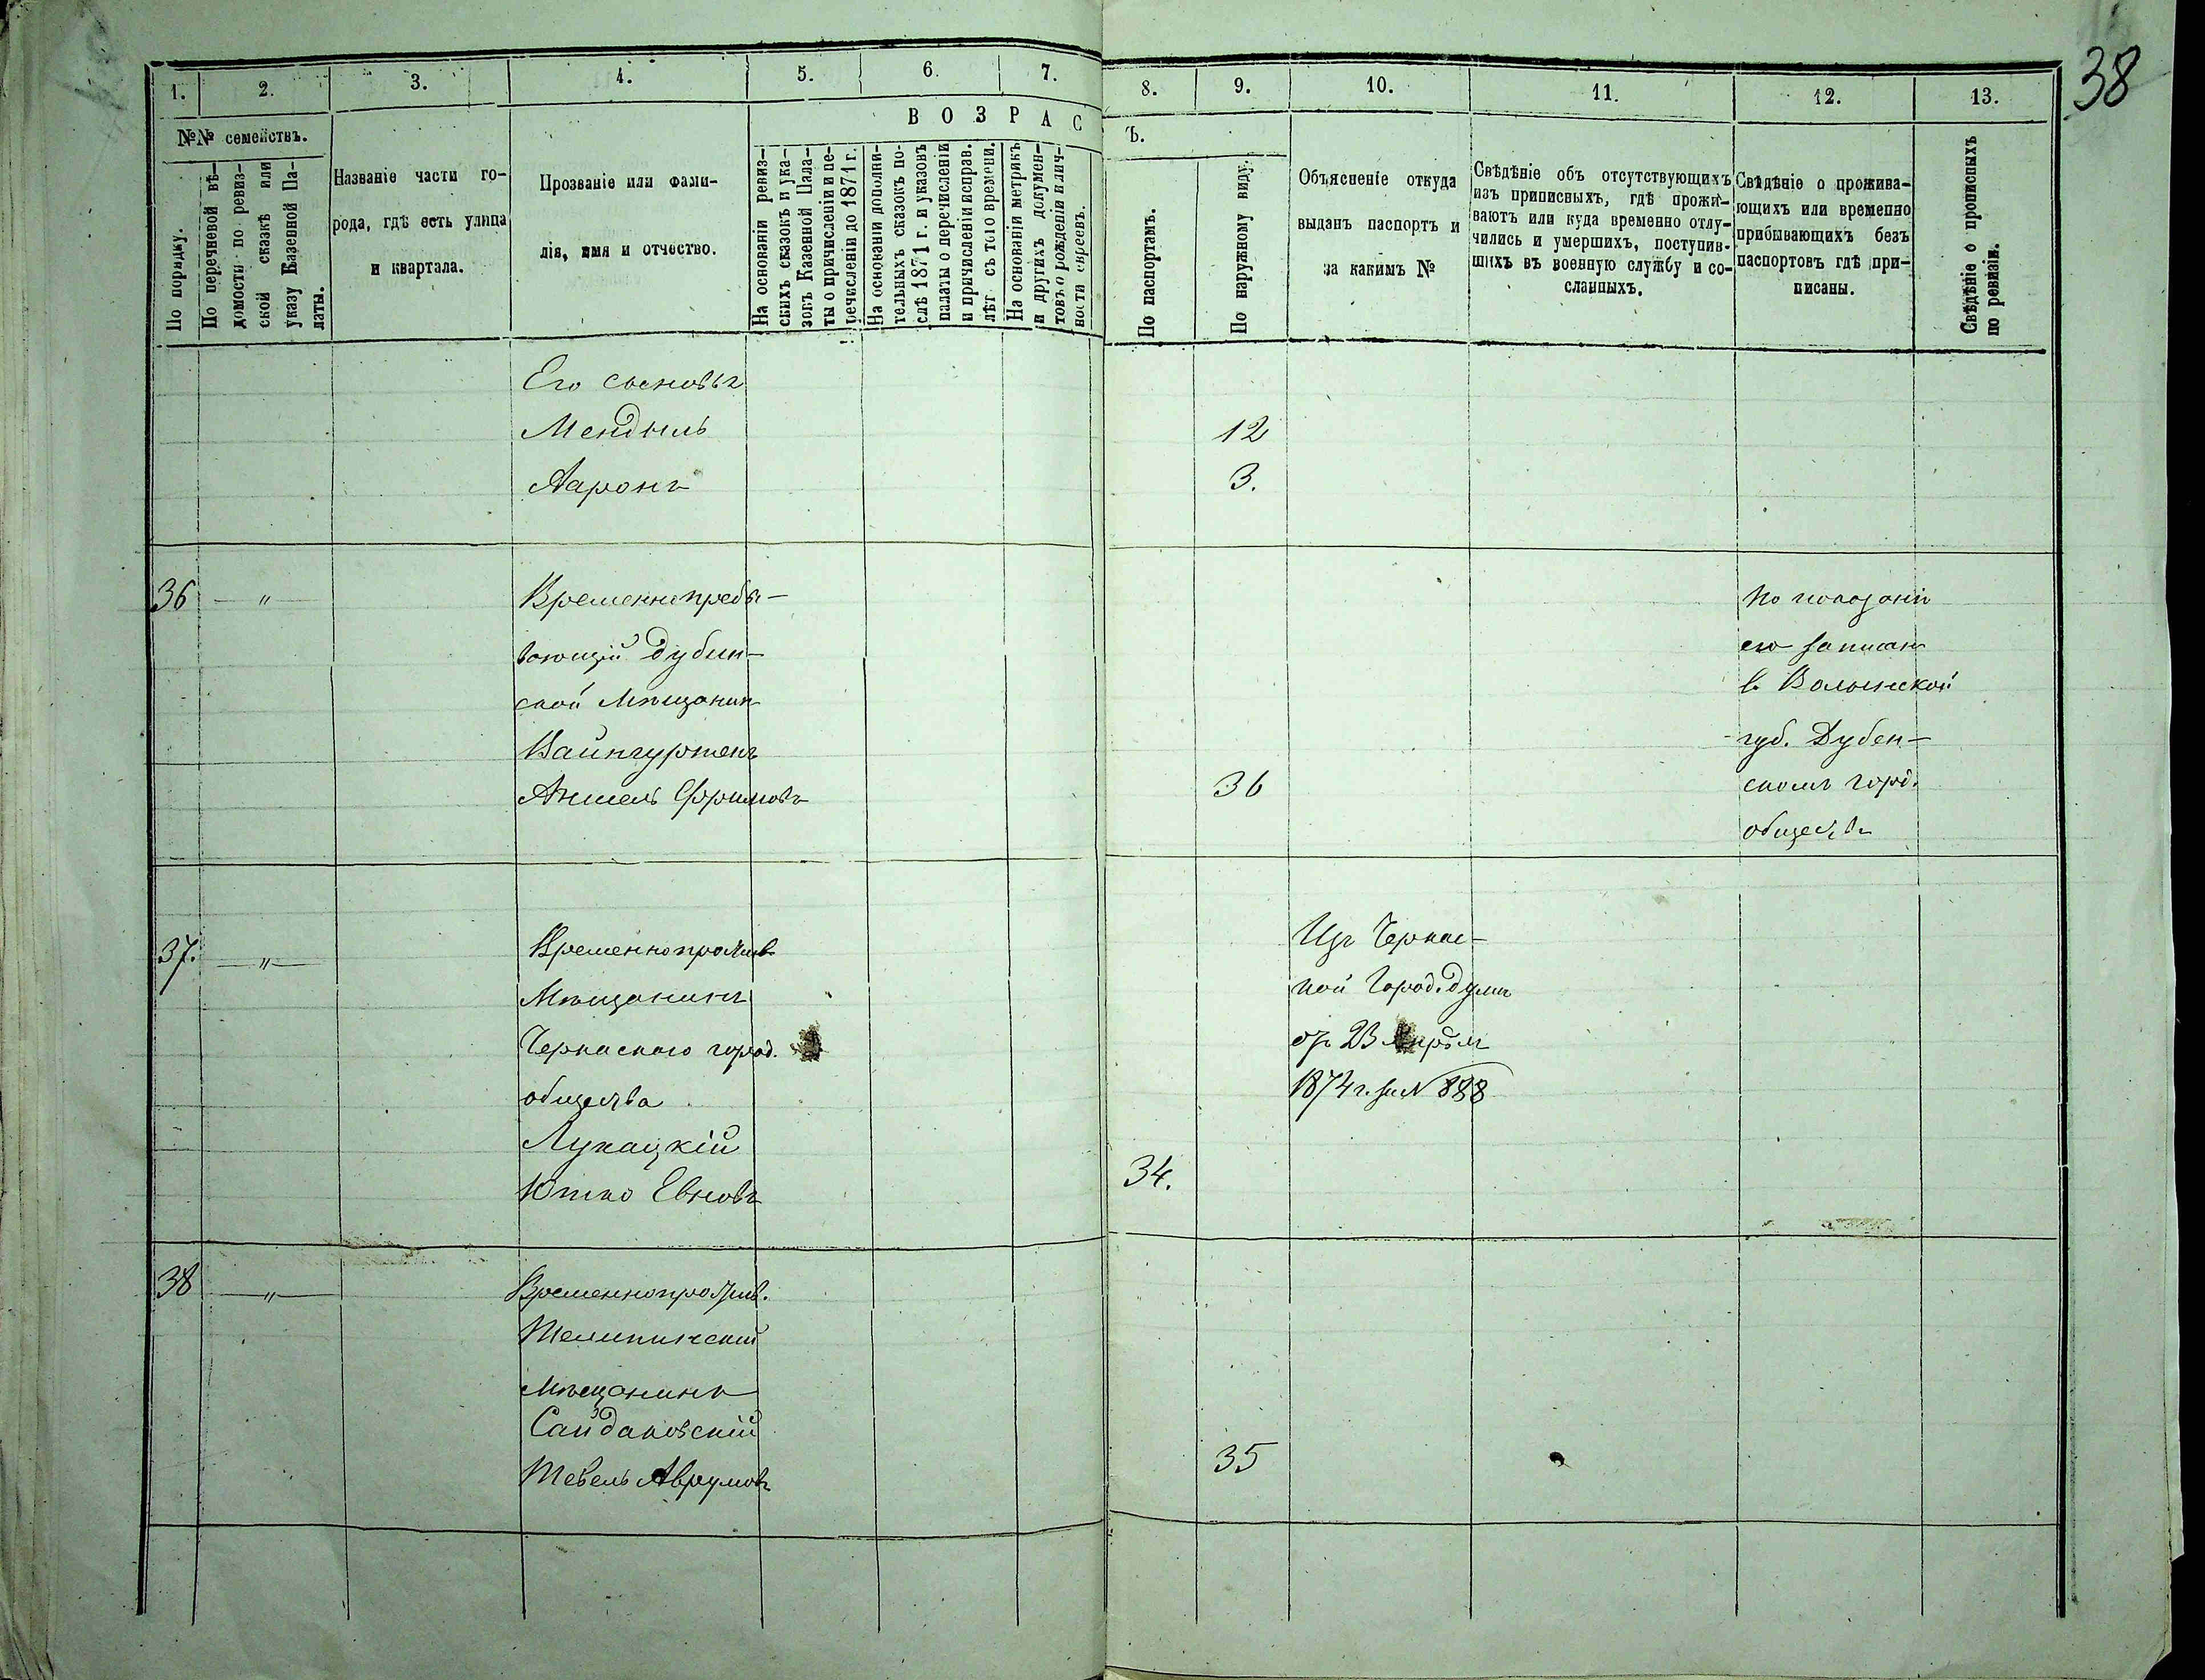 38
1. 2. 3. 4. 5. 6. 7. 8. 9. 10. 11. 12. 13.
№№ семействъ.
По порядку.
По перечневой вѣ-
домости по ревиз-
ской сказкѣ или
указу Казенной Па-
латы.
Названіе части го-
рода, гдѣ есть улица
и квартала.
Прозваніе или фами-
лія, имя и отчество.
ВОЗРАС
Ъ.
На основаніи ревиз-
скихъ сказокъ и ука-
зовъ Казенной Пала-
ты о причисленіи и пе-
речисленіи до 1871 г.
На основаніи дополни-
тельныхъ сказокъ по-
слѣ 1871 г. и указовъ
палаты о перечисленіи
и причисленіи исправ.
лѣт съ того времени.
На основаніи метрикъ
и другихъ докумен-
товъ о рожденіи и лич-
ности евреевъ.
По паспортамъ.
По наружному виду.
Объясненіе откуда
выданъ паспортъ и
за какимъ №
Свѣдѣніе объ отсутствующихъ
изъ приписныхъ, гдѣ прожи-
ваютъ или куда временно отлу-
чились и умершихъ, поступив-
шихъ въ военную службу и со-
сланныхъ.
Свѣдѣніе о прожива-
ющихъ или временно
прибывающихъ безъ
паспортовъ гдѣ при-
писаны.
Свѣдѣніе о прописныхъ
по ревизіи.
Его сыновья
Мендель 12
Ааронъ 3.
36 — „ —
Временнопребы-
вающій Дубен-
ской Мѣщанин
Вайнгуртенъ
Аншель Фроимовъ
36
По показанію
его записан
в Волынской
губ. Дубен-
скомъ горд.
обществѣ
37. — „ —
Временнопрожив.
Мѣщанинъ
Черкаскаго город.
общества
Лукацкій
Юшко Евновъ
34.
Изъ Черкас-
кой Город. Думы
отъ 23 Апрѣля
1874 г. за N 888
38 — „ —
Временнопрожив.
Телипинскій
Мѣщанинъ
Сайдаковскій
Тевель Аврумовъ
35